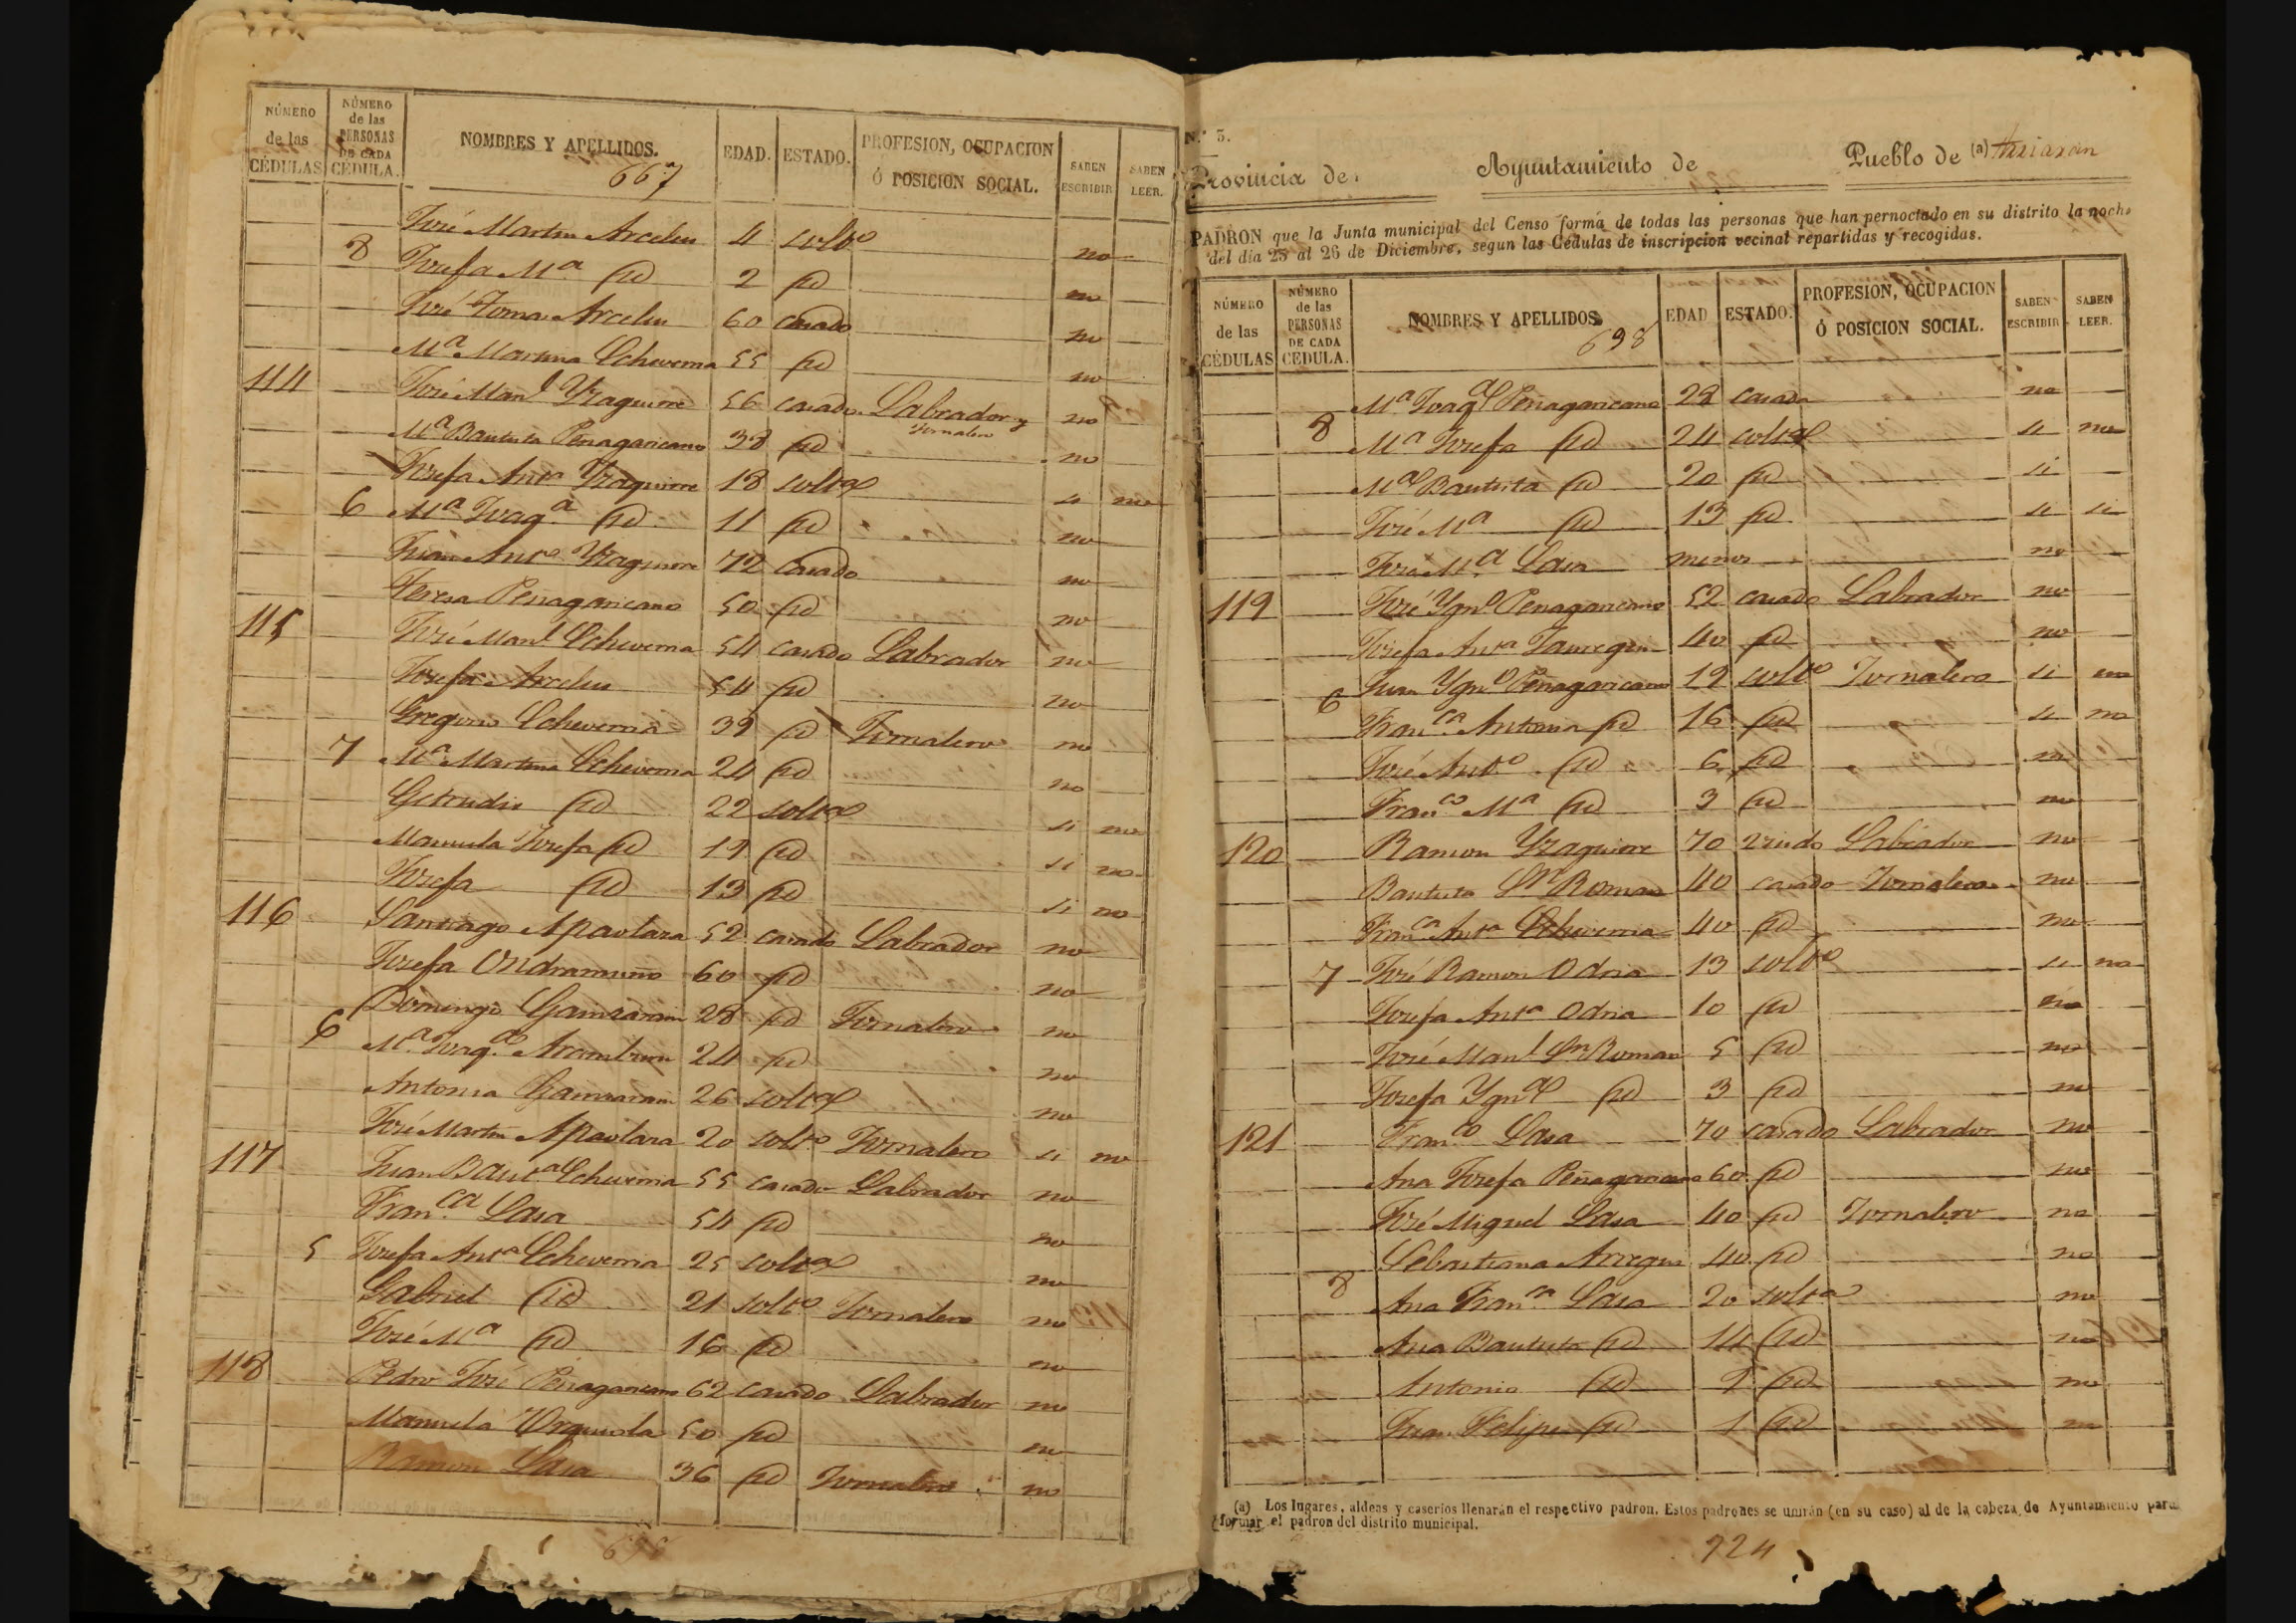 NÚMERO de las CÉDULAS NÚMERO de las PERSONAS DE CADA CÉDULA. NOMBRES Y APELLIDOS. EDAD. ESTADO. PROFESION, OCUPACION Ó POSICION SOCIAL. SABEN ESCRIBIR SABEN LEER.
667
José Martin Arcelus 4 solto no
8 Josefa Ma id 2 id no
José Tomas Arcelus 60 casado no
Ma Martina Echeverria 55 id no
114 José Manl Yzaguirre 56 casado Labrador y Jornalero no
Ma Bautista Penagaricano 38 id no
Josefa Anta Yzaguirre 18 solta si no
6 Ma Joaqa id 11 id no
Juan Anto Yzaguirre 72 Casado no
Teresa Penagaricano 50 id no
115 José Manl Echeverria 54 casado Labrador no
Josefa Arcelus 54 id no
Gregorio Echeverria 39 id Jornalero no
7 Ma Martina Echeverria 24 id no
Getrudis id 22 solta si no
Manuela Josefa id 19 id si no
Josefa id 13 id si no
116 Santiago Apaolaza 52 casado Labrador no
Josefa Ondramuño 60 id no
Domingo 28 id Jornalero no
6 Ma Joaqa Aramburu 24 id no
Antonia 26 solta no
José Martin Apaolaza 20 solto Jornalero si no
117 Juan Bauta Echeverria 55 casado Labrador no
Franca Lasa 54 id no
5 Josefa Anta Echeverria 25 solta no
Gabriel id 21 solto Jornalero no
José Ma id 16 id no
118 Pedro José Penagaricano 62 casado Labrador no
Manuela Urquiola 50 id no
Ramon Lasa 36 id Jornalero no
N.º 3.
Provincia de Ayuntamiento de Pueblo de (a)
PADRON que la Junta municipal del Censo forma de todas las personas que han pernoctado en su distrito la noche
del dia 25 al 26 de Diciembre, segun las Cédulas de inscripcion vecinal repartidas y recogidas.
NÚMERO de las CÉDULAS NÚMERO de las PERSONAS DE CADA CEDULA. NOMBRES Y APELLIDOS. EDAD ESTADO. PROFESION, OCUPACION Ó POSICION SOCIAL. SABEN ESCRIBIR SABEN LEER.
698
Ma Joaqa Peñagaricano 28 casada no
8 Ma Josefa id 24 solta si no
Ma Bautista id 20 id si
José Ma id 13 id si si
José Ma Lasa menor no
119 José Ygno Penagaricano 52 casado Labrador no
Josefa Anta Jauregui 40 id no
6 Juan Ygno Peñagaricano 19 solto Jornalero si no
Franca Antonia id 16 id si no
José Anto id 6 id no
Franco Ma id 3 id no
120 Ramon Yzaguirre 70 viudo Labrador no
Bautista Sn Roman 40 casado Jornalero no
Franca Anta Echeverria 40 id no
7 José Ramon Odria 13 solto si no
Josefa Anta Odria 10 id no
José Manl Sn Roman 5 id no
Josefa Ygna id 3 id no
121 Franco Lasa 70 casado Labrador no
Ana Josefa Peñagaricano 60 id no
José Miguel Lasa 40 id Jornalero no
Sebastiana Arregui 40 id no
8 Ana Franca Lasa 20 solta no
Ana Bautista id 14 id no
Antonio id 9 id no
Juan Felipe id 1 id no
(a) Los lugares, aldeas y caserios llenarán el respectivo padron. Estos padrones se unirán (en su caso) al de la cabeza de Ayuntamiento para
formar el padron del distrito municipal.
698
724